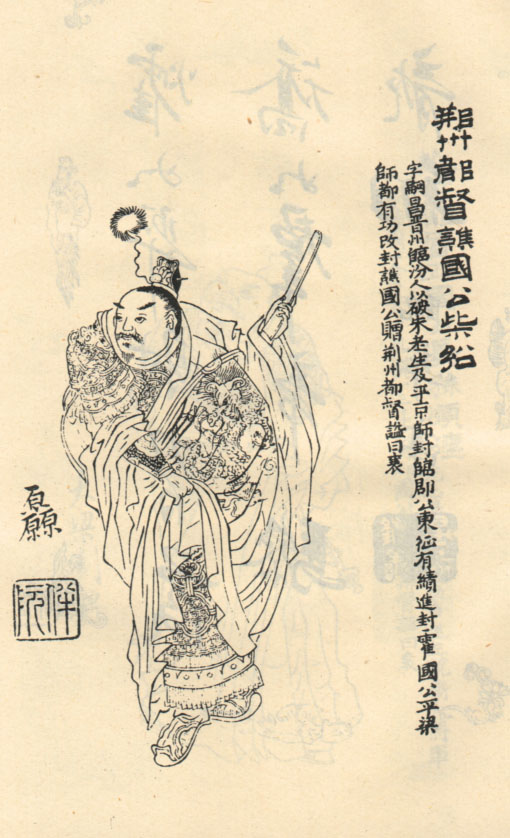 荊州都督譙國公柴紹
字嗣昌晉州臨汾人以破朱老生及平京師封臨郡公東征有績進封霍國公平梁
師都有功改封譙國公贈荊州都督諡曰襄
伴阮